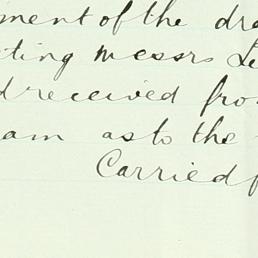 ment of the dra
ting Messrs Le
d received fro
am as to the
Carried f